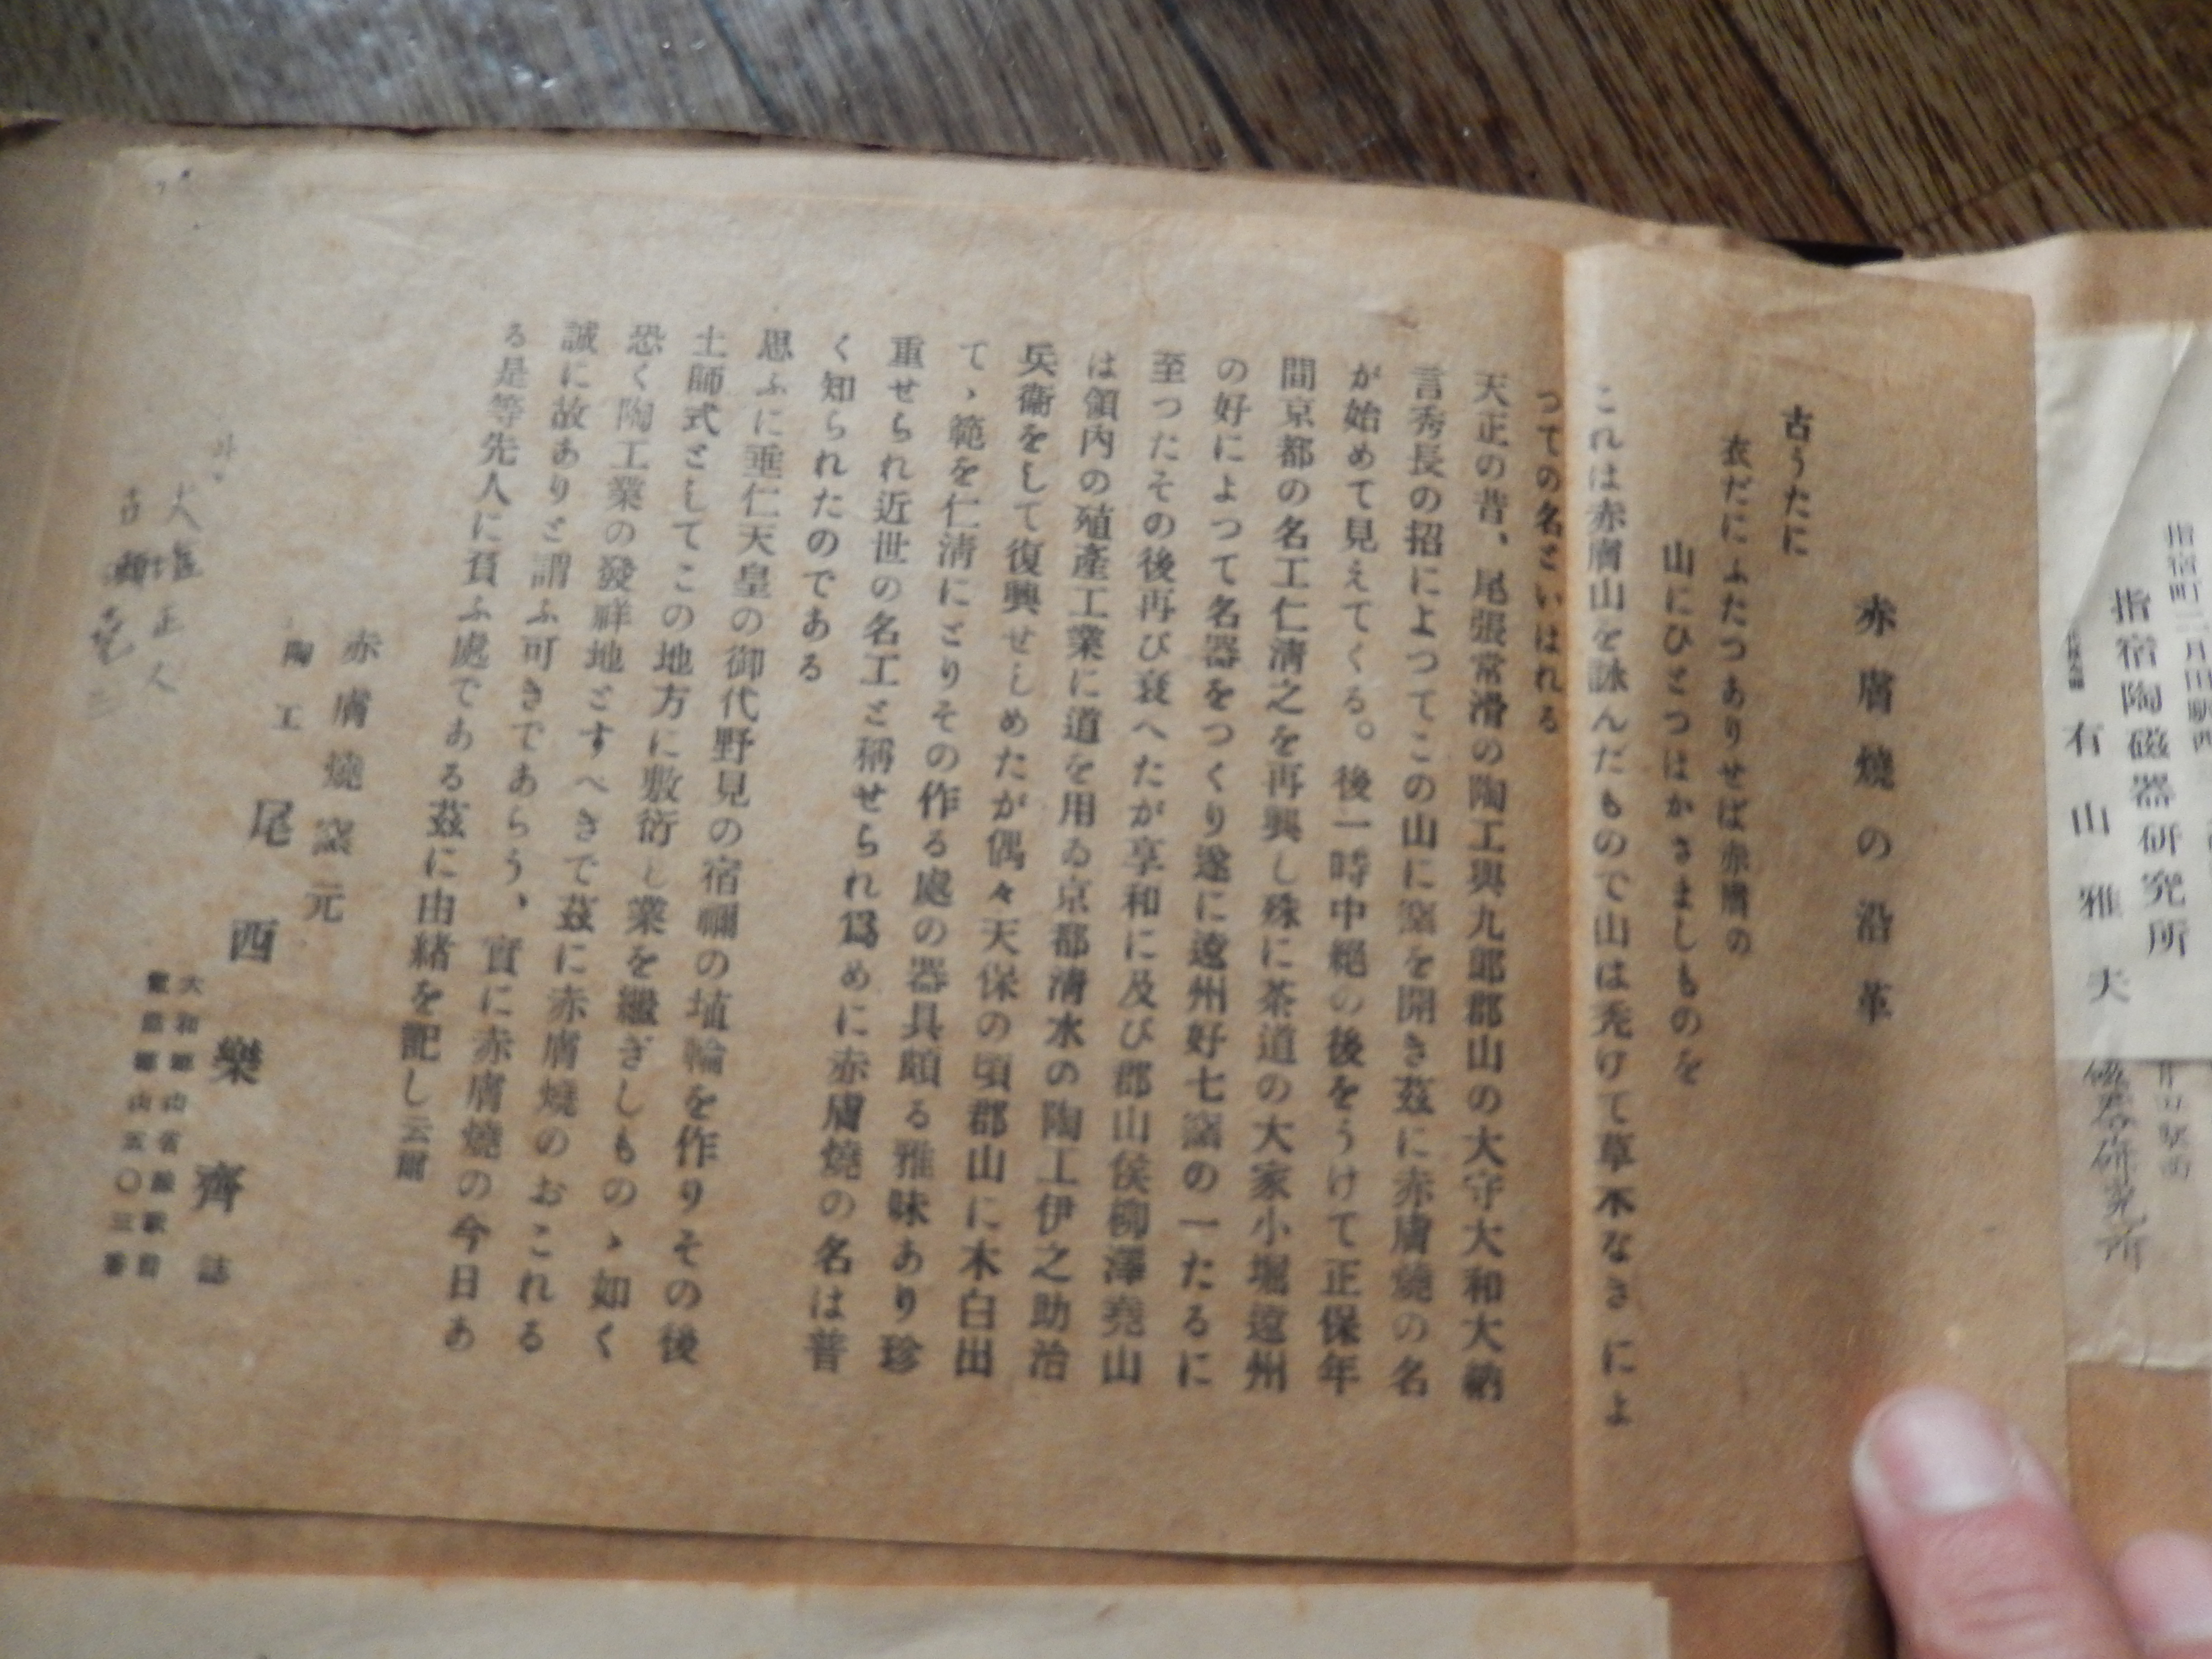 指宿陶磁器研究所
有山雅夫
赤膚燒の沿革
古うたに
衣だにふたつありせば赤膚の
山にひとつはかさましものを
これは赤膚山を詠んだもので山は禿げて草木なきによ
つての名といはれる
天正の昔、尾張常滑の陶工與九郎郡山の大守大和大納
言秀長の招によつてこの山に窯を開き茲に赤膚燒の名
が始めて見えてくる。後一時中絕の後をうけて正保年
間京都の名工仁淸之を再興し殊に茶道の大家小堀遠州
の好によつて名器をつくり遂に遠州好七窯の一たるに
至つたその後再び衰へたが享和に及び郡山侯柳澤堯山
は領內の殖產工業に道を用ゐ京都淸水の陶工伊之助治
兵衞をして復興せしめたが偶々天保の頃郡山に木白出
てゝ範を仁淸にとりその作る處の器具頗る雅味あり珍
重せられ近世の名工と稱せられ爲めに赤膚燒の名は普
く知られたのである
思ふに垂仁天皇の御代野見の宿禰の埴輪を作りその後
土師式としてこの地方に敷衍し業を繼ぎしものゝ如く
恐く陶工業の發祥地とすべきで茲に赤膚燒のおこれる
誠に故ありと謂ふ可きであらう、實に赤膚燒の今日あ
る是等先人に負ふ處である茲に由緒を記し云爾
赤膚燒窯元
陶工 尾西樂齊 誌
大和郡山省線驛前
電話郡山五〇三番